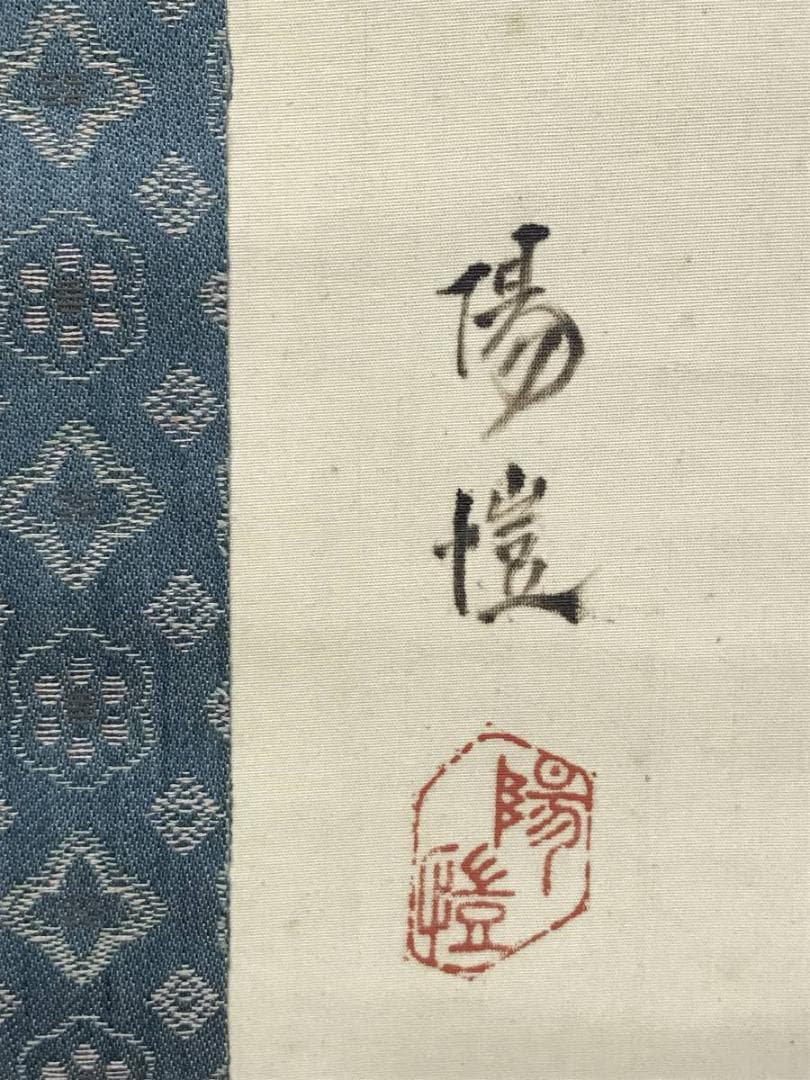 陽愷
陽愷